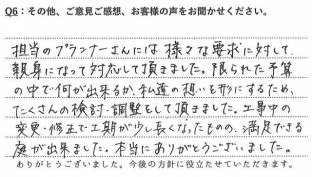 Q6：その他、ご意見ご感想、お客様の声をお聞かせください。
担当のプランナーさんには様々な要求に対して、
親身になって対応して頂きました。限られた予算
の中で何が出来るか、私達の想いを形にするため、
たくさんの検討・調整をして頂きました。工事中の
変更・修正で工期が少し長くなったものの、満足できる
庭が出来ました。本当にありがとうございました。
ありがとうございました。今後の方針に役立たせていただきます。